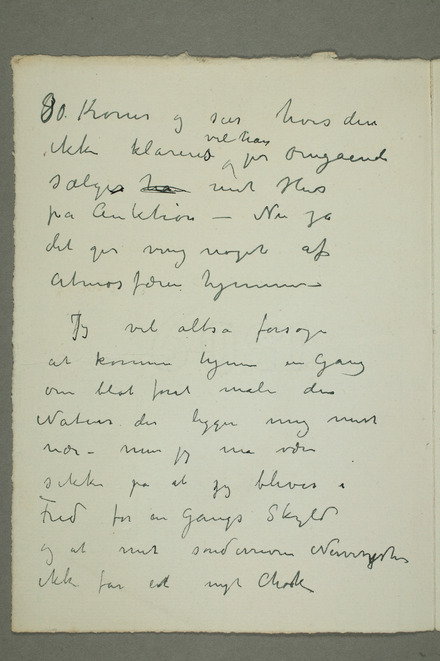 80. Kroner og sier hvis den
ikke klareres vil han og per Omgaaende
sælge ha mit Hus
på Auktion – Nu ja
det ger mig noget af
Atmosfæren hjemme –
Jeg vil altså forsøge
at komme hjem en Gang
om blot foret male den
Natur der ligger mig mest
nær – men jeg må være
sikker på at jeg bliver i
Fred for en Gangs Skyld
og at mit Nervesystem
ikke får et nyt Chok